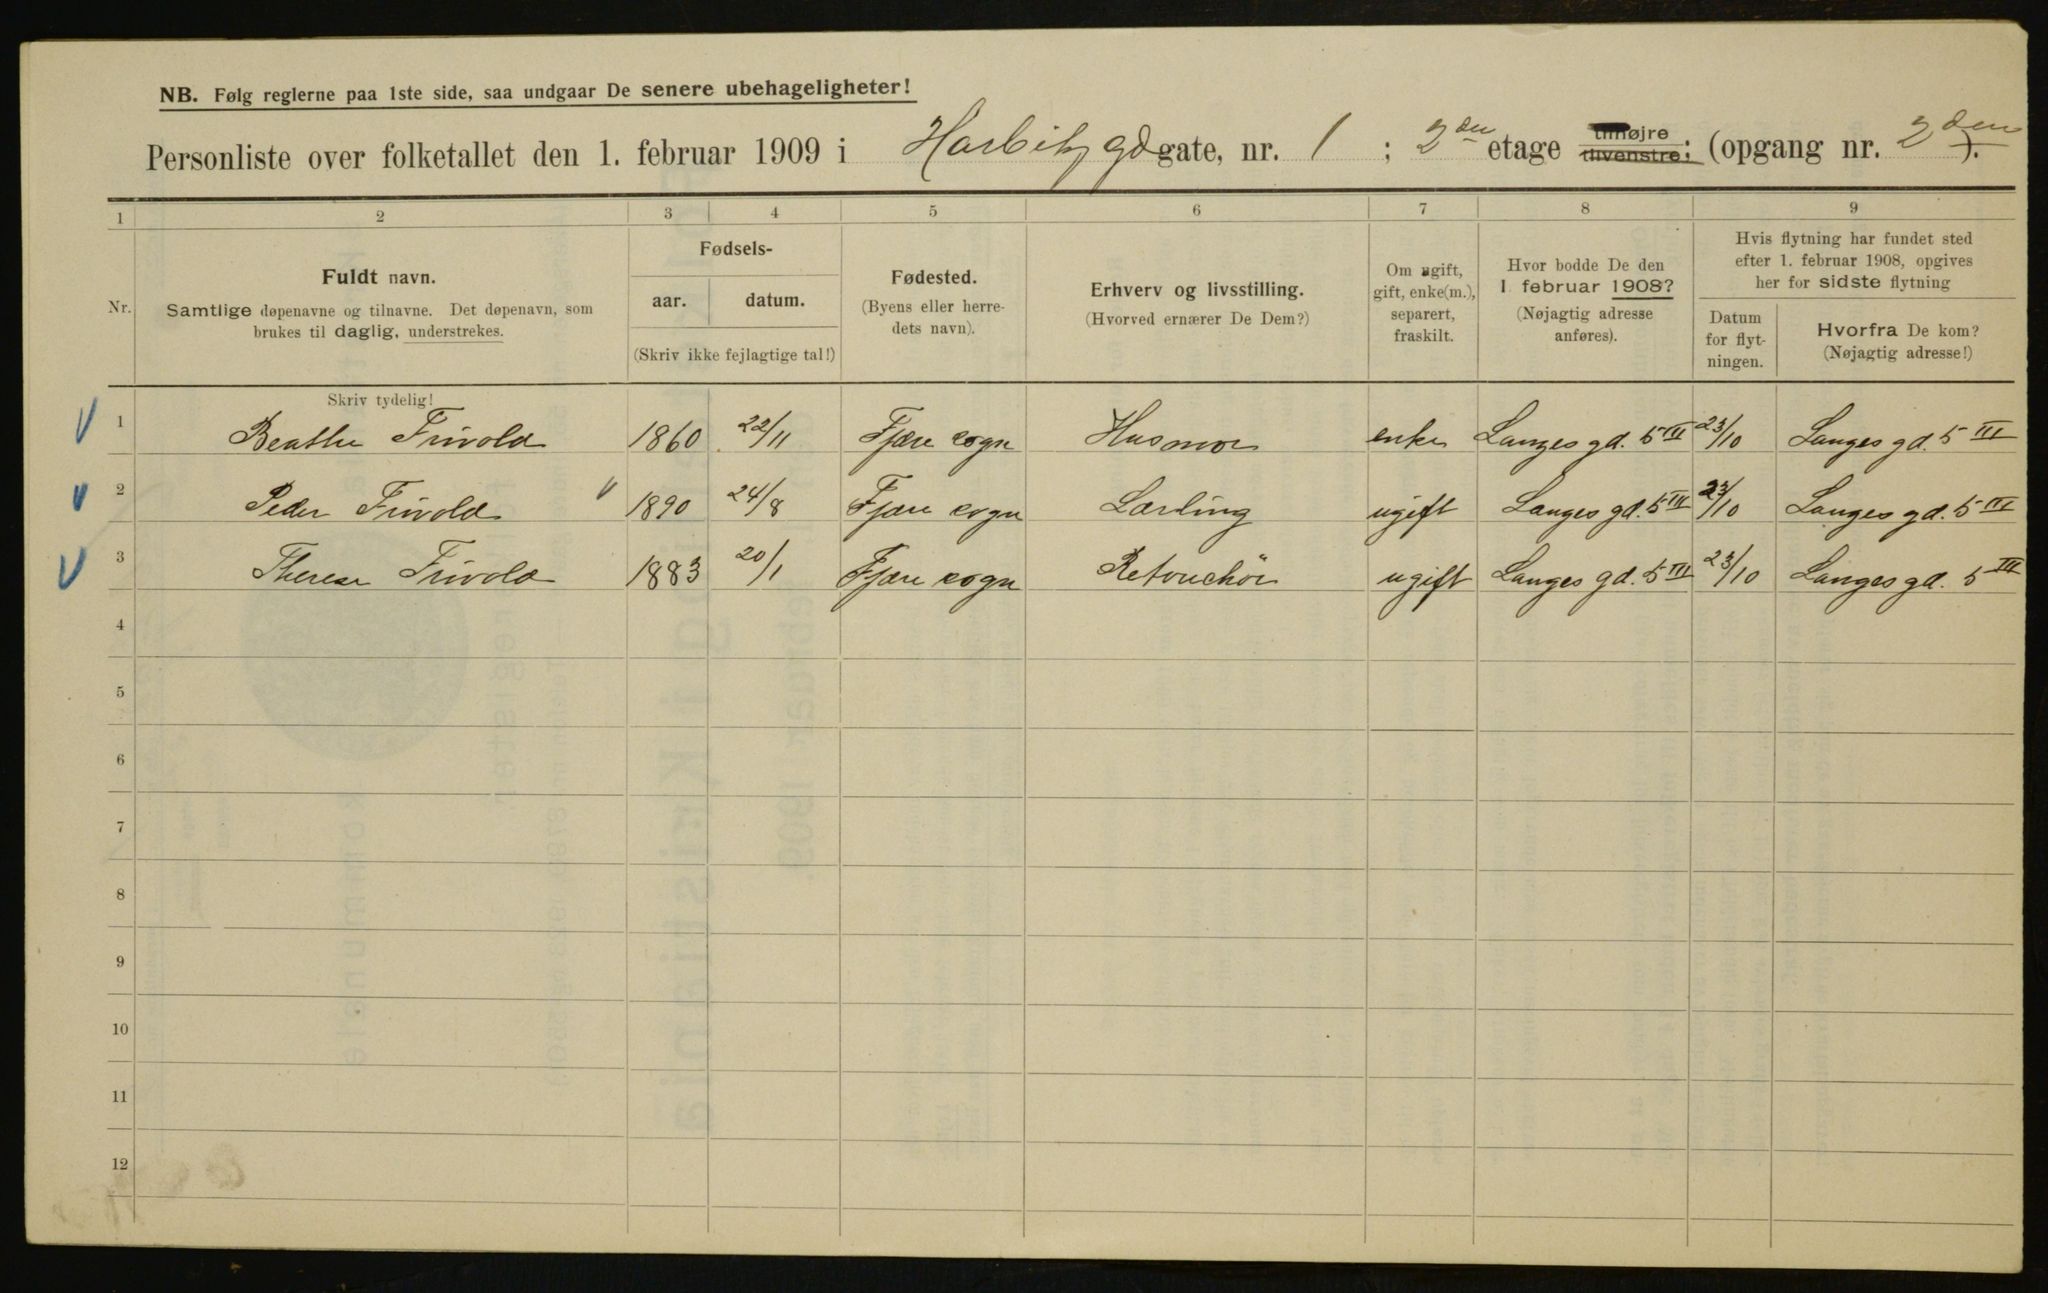 NB. Følg reglerne paa 1ste side, saa undgaar De senere ubehageligheter!
Personliste over folketallet den 1. februar 1909 i Harbitz gd gate, nr. 1 ; 2den etage tilhøjre tilvenstre; (opgang nr. 2den ).
1 2 3 4 5 6 7 8 9
Nr.
Fuldt navn.
Samtlige døpenavne og tilnavne. Det døpenavn, som
brukes til daglig, understrekes.
Fødsels-
aar. datum.
(Skriv ikke fejlagtige tal!)
Fødested.
(Byens eller herre-
dets navn).
Erhverv og livsstilling.
(Hvorved ernærer De Dem?)
Om ugift,
gift, enke(m.),
separert,
fraskilt.
Hvor bodde De den
1. februar 1908?
(Nøjagtig adresse
anføres).
Hvis flytning har fundet sted
efter 1. februar 1908, opgives
her for sidste flytning
Datum
for flyt-
ningen.
Hvorfra De kom?
(Nøjagtig adresse!)
Skriv tydelig!
1 Beathe Frivold 1860 22/11 Fjære sogn Husmor enke Langes gd. 5 III 23/10 Langes gd. 5 III
2 Peder Frivold 1890 24/8 Fjære sogn Lærling ugift Langes gd. 5 III 23/10 Langes gd. 5 III
3 Therese Frivold 1883 20/1 Fjære sogn Retouchör ugift Langes gd. 5 III 23/10 Langes gd. 5 III
4
5
6
7
8
9
10
11
12